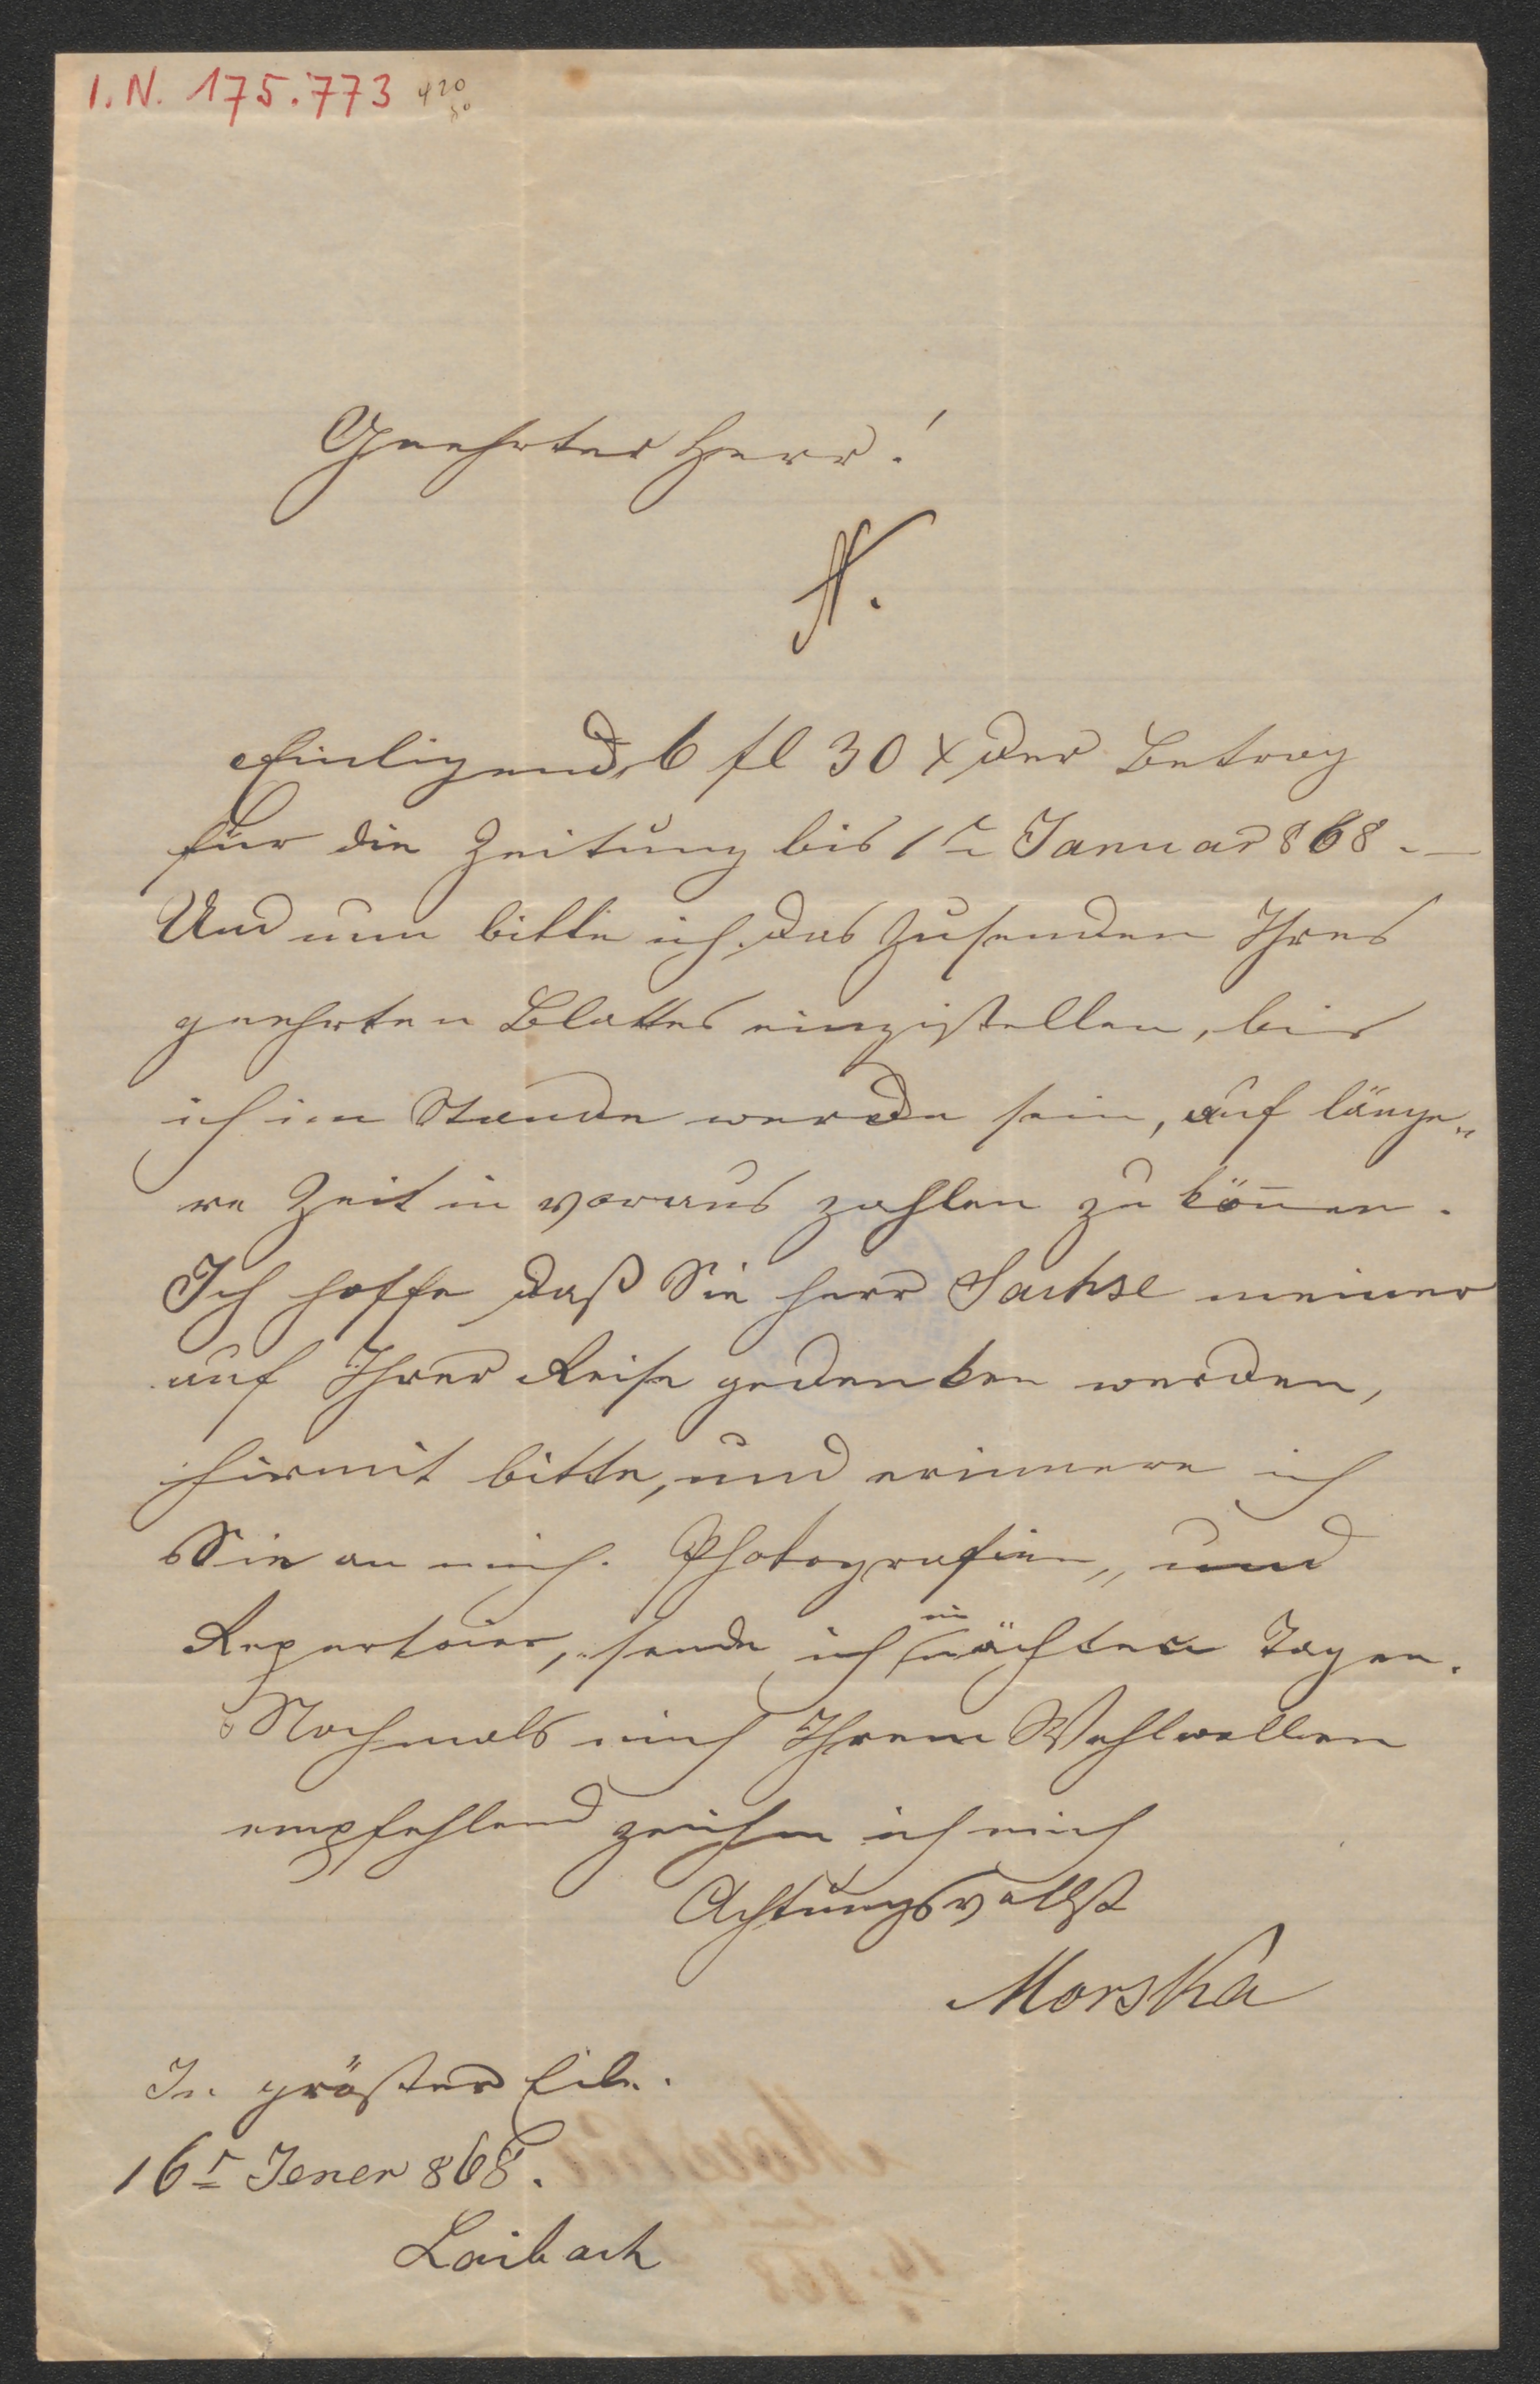 I. N. 175.773 420
80
Geehrter Herr!
N.
Einligend 6 fl 30 x der Betrag
für die Zeitung bis 1ten Januar 868. —
Und nun bitte ich das Zusenden Ihres
geehrten Blattes einzustellen, bis
ich im Stande werde sein, auf länge„
re Zeit in voraus zahlen zu kön̄en.
Ich hoffe daß Sie Herr Sachse meiner
auf Ihrer Reise gedenken werden,
hirmit bitte, und erinnere ich
Sie an mich. Photografien,, und
Repertoier, sende ich in nächsten Tagen.
Nochmals mich Ihrem Wohlwollen
empfehlend zeichne ich mich
Achtungsvollst
Morska
In größter Eile.
16t Jener 868.
Laibach